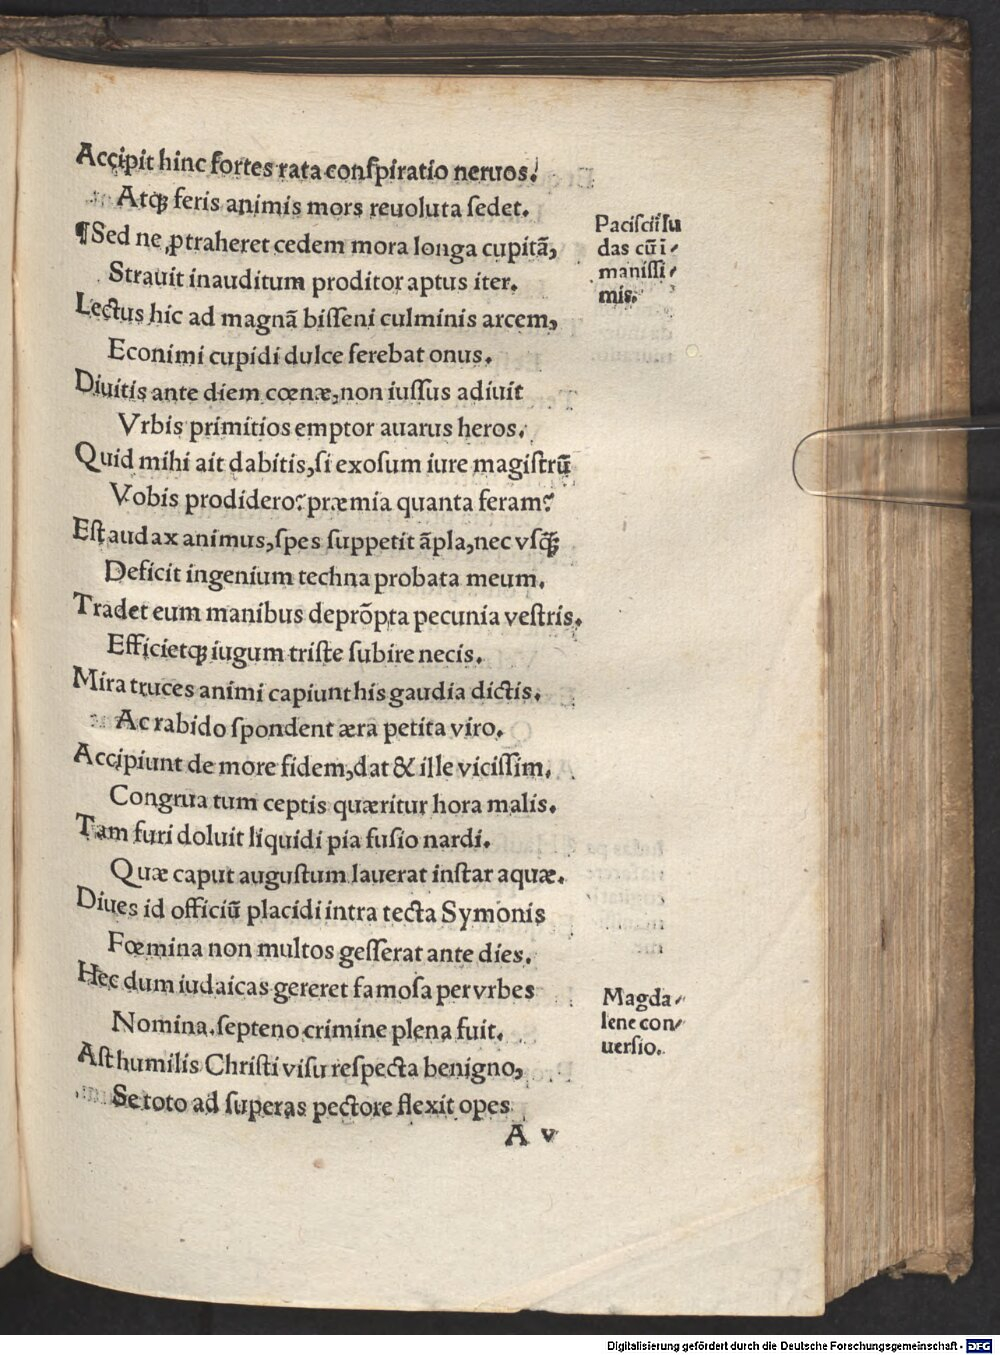 Accipit hinc fortes rata conſpiratio neruos.
Atqꝫ feris animis mors reuoluta ſedet.
¶Sed ne ꝓtraheret cedem mora longa cupitã,
Strauit inauditum proditor aptus iter.
Lectus hic ad magnã biſſeni culminis arcem,
Econimi cupidi dulce ferebat onus.
Diuitis ante diem cœnæ, non iuſſus adiuit
Vrbis primitios emptor auarus heros.
Quid mihi ait dabitis, ſi exoſum iure magiſtrũ
Vobis prodidero? præmia quanta feram?
Eſt audax animus, ſpes ſuppetit ãpla, nec vſqꝫ
Deficit ingenium techna probata meum.
Tradet eum manibus deprõpta pecunia veſtris.
Efficietqꝫ iugum triſte ſubire necis.
Mira truces animi capiunt his gaudia dictis.
Ac rabido ſpondent æra petita viro.
Accipiunt de more fidem, dat & ille viciſſim.
Congrua tum ceptis quæritur hora malis.
Tam furi doluit liquidi pia fuſio nardi.
Quæ caput auguſtum lauerat inſtar aquæ.
Diues id officiũ placidi intra tecta Symonis
Fœmina non multos geſſerat ante dies.
Hec dum iudaicas gereret famoſa per vrbes
Nomina, ſepteno crimine plena fuit.
Aſt humilis Chriſti viſu reſpecta benigno,
Se toto ad ſuperas pectore flexit opes
A v
Paciſcit̃ Iu
das cũ i⸗
maniſſi⸗
mis.
Magda⸗
lene con⸗
uerſio.
Digitalisierung gefördert durch die Deutsche Forschungsgemeinschaft - DFG